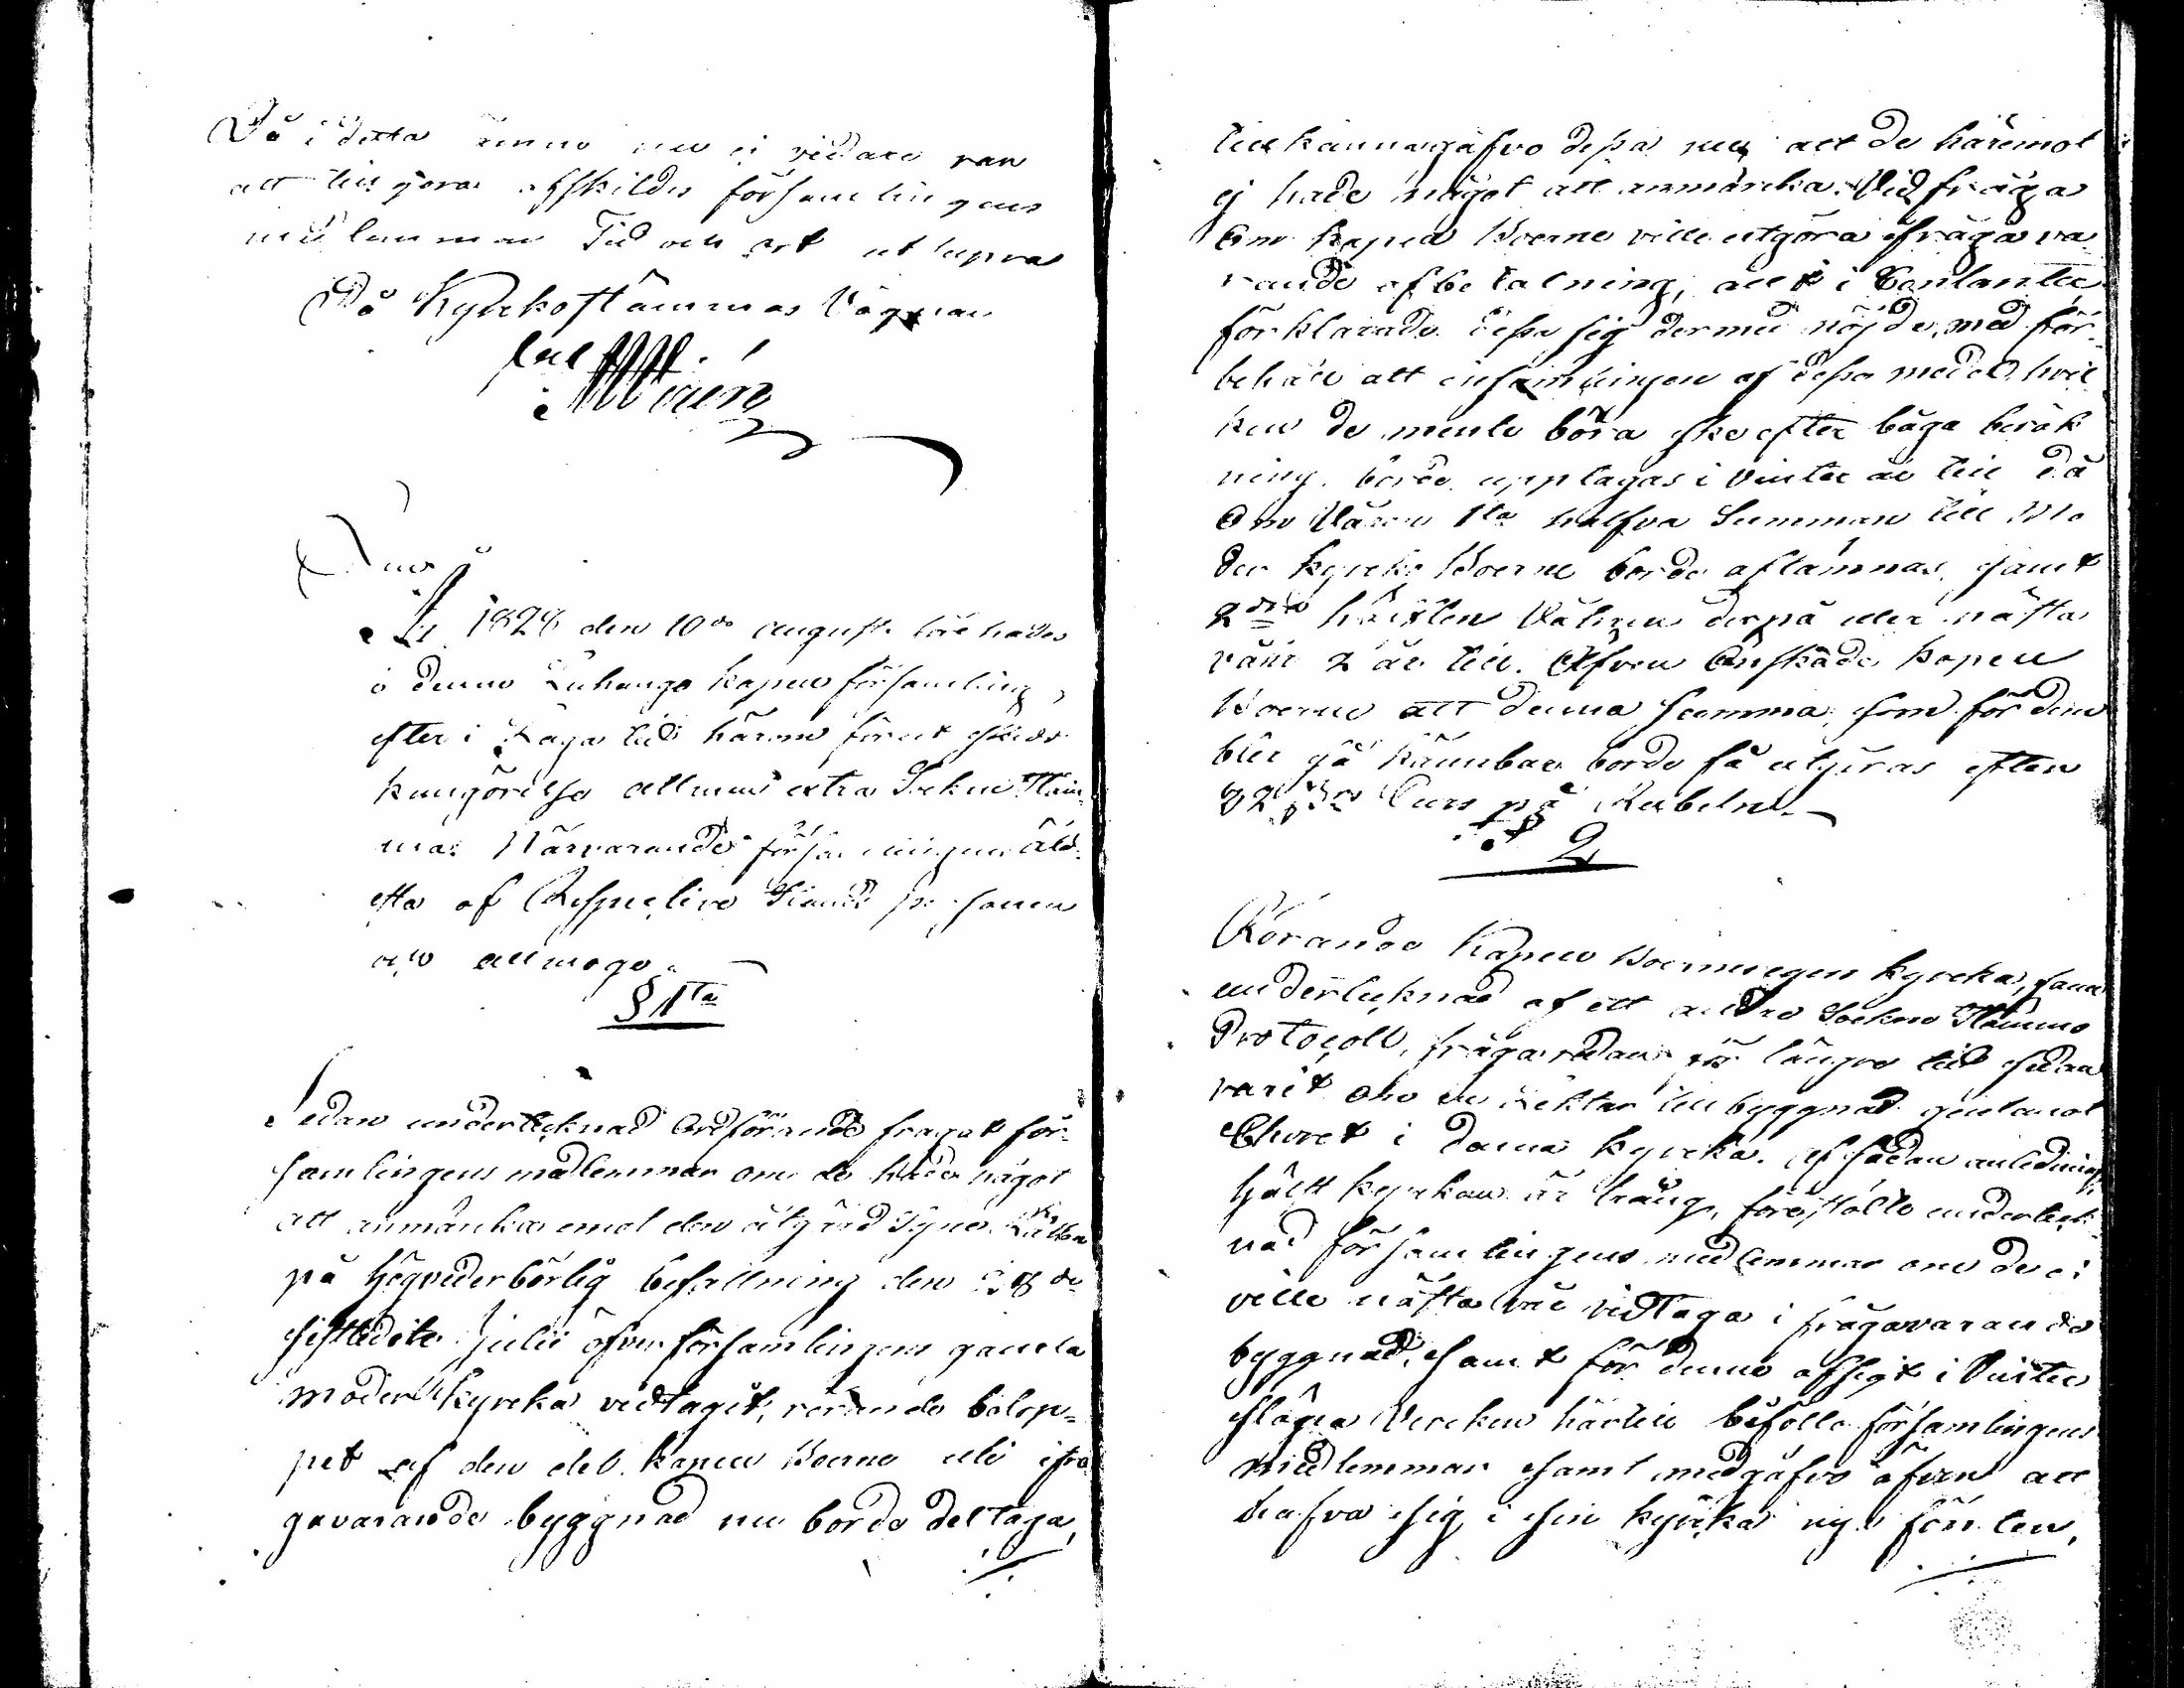 Då i detta ämne nu ej vidare var
att tillgöra åtskildes församlingens
medlemmar Tid och ort utsupra
På Kyrkostämmas Vägnar
År 1828 den 10de augusti förehades
i denna Luhango kapell församling,
efter i Laga tid härom förut skedd
kungörelse allmän extra Sockne Stäm-
ma. Närvarande församlingens äld-
sta af Respective Stånds personer
och allmoge.
§ 1ta
Sedan undertecknad Ordförande frågat för-
samlingens medlemmar om de hade något
att anmärka emot den åtgärd Syne Rätten
på högvederbörlig befallning den
sistledite Julii öfver församlingens gamla
moder kyrka vidtagit, rörande belop-
pet af den del kapell boerne uti ifrå
gavarande byggnad nu borde deltaga,
tillkännagåfvo dessa nu, att de häremot
ej hade något att anmärka. Vid fråga
Om kapell boerne ville utgöra ifrågava
rande afbetalning, allt i Contanter
förklarade dessa sig dermed nöjde, med för-
behåll att insamlingen af dessa medel hvil
ken de mente böra ske efter båga beräk
ning, borde upptagas i vinter år till då
Om Våren 1ta halfva Summan till Mo
der kyrko boerne borde aflämnas, samt
2dra hälften Våhren derpå eller nästa
vår 2 år till. Äfven Önskade kapell
boerne att denna summa, som för dem
blir gå kännbar borde få utgöras efter
Curs på Rubeln.
§ 2
Rörande Kapell boernes egen kyrka, fann
undertecknad af ett äldre Sockne Stämmo
Protocoll, fråga redan för längre tid sedan
varit om en Sacristie tillbyggnad gentemot
Choret i denna kyrka. Af sådan anledning
hälst kyrkan är trång, föreställte underteck-
nad församlingens medlemmar om de ej
ville nästa vår vidtaga i frågavarande
byggnad, samt för denna afsigt i Vinter
släpa Virken härtill biföllo församlingens
medlemmar samt medgåfvo äfven att
hafva sig i sin kyrka nye fönster,